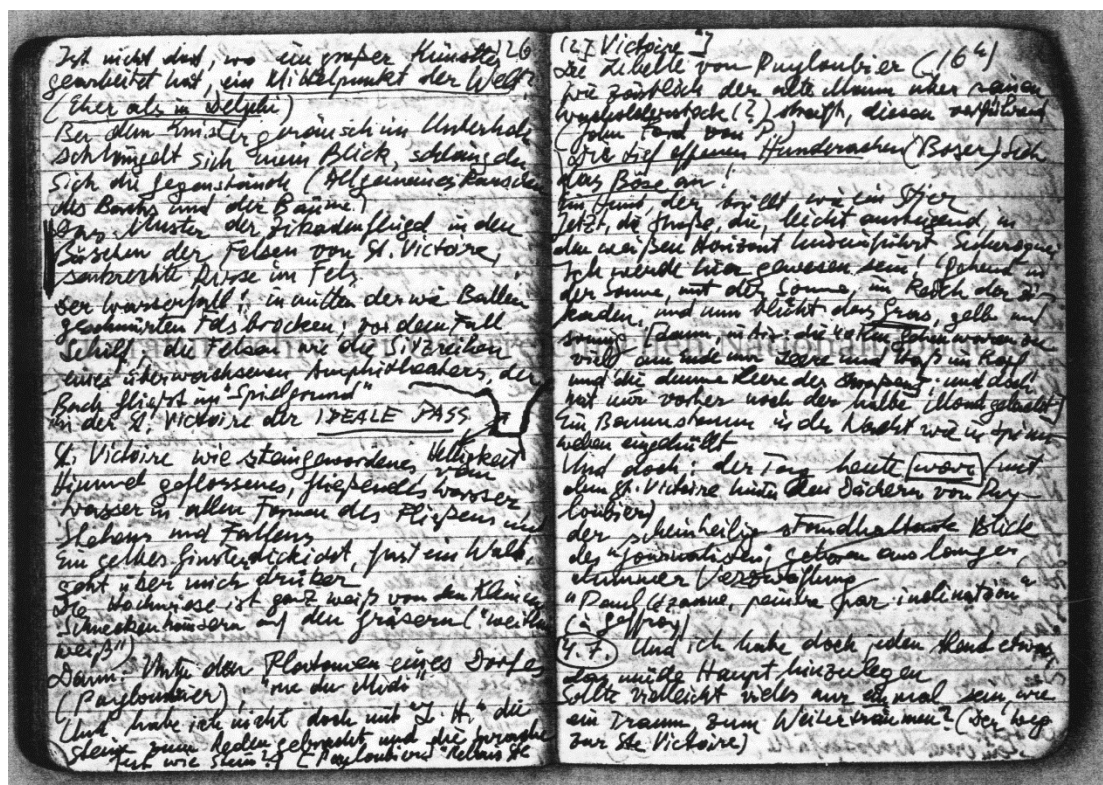 Ist nicht dort, wo ein großer Künstler 26
gearbeitet hat, ein Mittelpunkt der Welt?
(Eher als in Delphi)
Bei dem geräusch im Unterholz
schlängelt sich mein Blick, schlängeln
sich die Gegenstände (Allgemeines Rauschen
des Bachs und der Bäume)
Das Muster der Zikadenflügel in den
Büschen der Felsen von St. Victoire,
senkrechte Risse im Fels
Der Wasserfall: inmitten der wie Ballen
geschnürten Felsbrocken; vor dem Fall
Schilf, die Felsen wie die Sitzreihen
eines überwachsenen Amphitheaters, der
Bach fließt im "Spielgrund"
In der St. Victoire der IDEALE PASS
St. Victoire wie steingewordenes Helligkeit
Himmel geflossenes, fließendes Wasser vom
Wasser in allen Formen des Fließens und
Stehens und Fallens
Ein gelbes Ginsterdickicht, fast ein Wald,
geht über mich drüber
Die Hochwiese ist ganz weiß von den kleinen
Schneckenhäusern auf den Gräsern ("weithin
weiß")
Dann: Unter den Platanen eines Dorfes
(Puyloubier), "rue du Midi"
Und habe ich nicht doch mit "L. H." die
Steine zum Reden gebracht und die Sprache
fest wie Stein? (Puyloubier, Relais Ste
[27 Victoire"]
Die Libelle von Puyloubier (16h)
Wie zärtlich der alte Mann über seinen
(?) streift, diesen vorführend
(John Ford von P.)
Die tief offenen Hunderachen (Boxer) Sieh
das Böse an!
Ein Hund, der brüllt wie ein Stier
Jetzt, die Straße, die, leicht ansteigend, in
den weißen Horizont hineinführt
Ich werde hier gewesen sein! (gehend in
der Sonne, mit der Sonne, im Reich der Zi-
kaden, und nun blüht das Gras, gelb und
sonnig
viel, am Ende nur Leere und Haß im Kopf
und die dumme Leere der und doch
hat mir vorher noch der halbe Mond geleuchtet)
Ein Baumstamm in der Nacht wie in Spinn-
weben eingehüllt
Und doch: der Tag heute war (mit
dem St. Victoire hinter den Dächern von Puy-
loubier)
der scheinheilig standhaltende Blick
des "Journalisten", geboren aus langer,
dummer Verzweiflung
"Paul Cézanne, peintre par inclination"
(à Geffroy)
4.7. Und ich habe doch jeden Abend etwas,
das müde Haupt hinzulegen
Sollte vielleicht vieles nur einmal sein, wie
ein Traum zum Weiterträumen? (Der Weg
zur Ste Victoire)